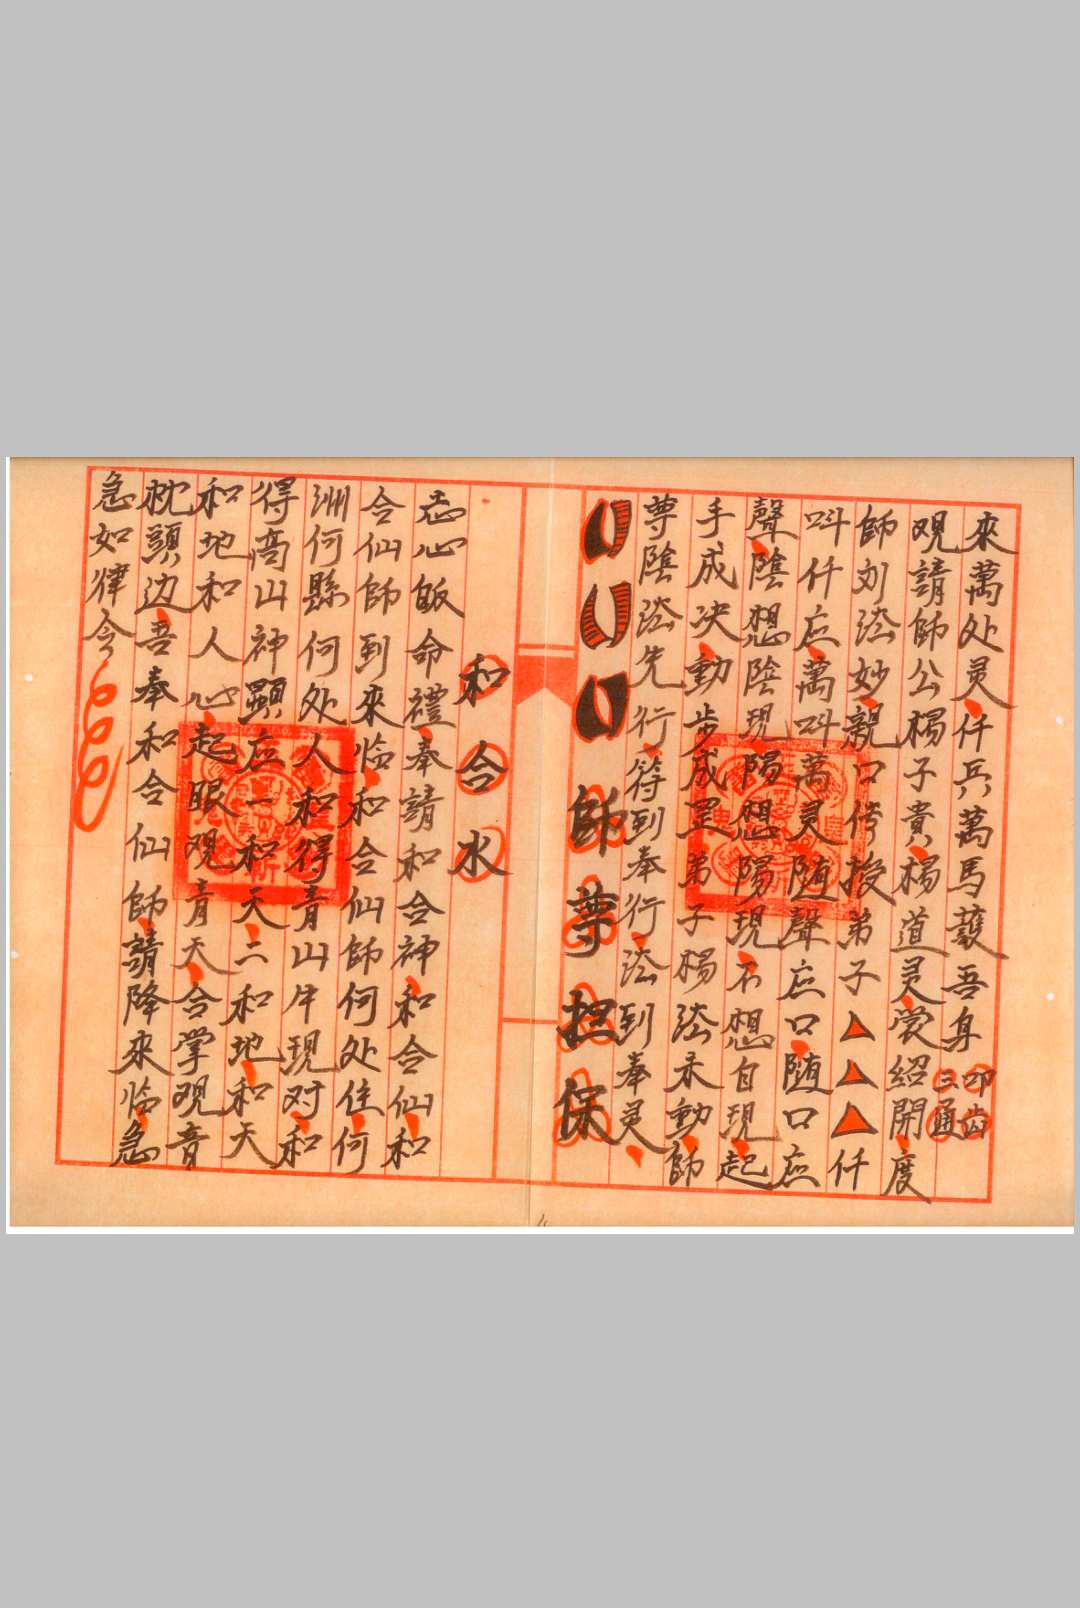 來萬处灵仟兵萬馬護吾身
叩齿
三通
观請師公楊子貴楊道灵裳紹開度
師刘法妙親口傳授弟子▲▲▲仟
叫仟应萬叫萬灵随聲应口随口应
聲陰想陰現陽想陽現不想自現起
手成决動步成罡弟子楊法未動師
尊陰法先行符到奉行法到奉灵
師尊担保
和合水
志心皈命禮奉請和合神和合仙和
合仙師到來临和合仙師何处住何
洲何縣何处人和得青山牛現对和
得高山神顯应一和天二和地和天
和地和人心起眼观青天合掌观音
枕頭边吾奉和合仙師請降來临急
急如律令